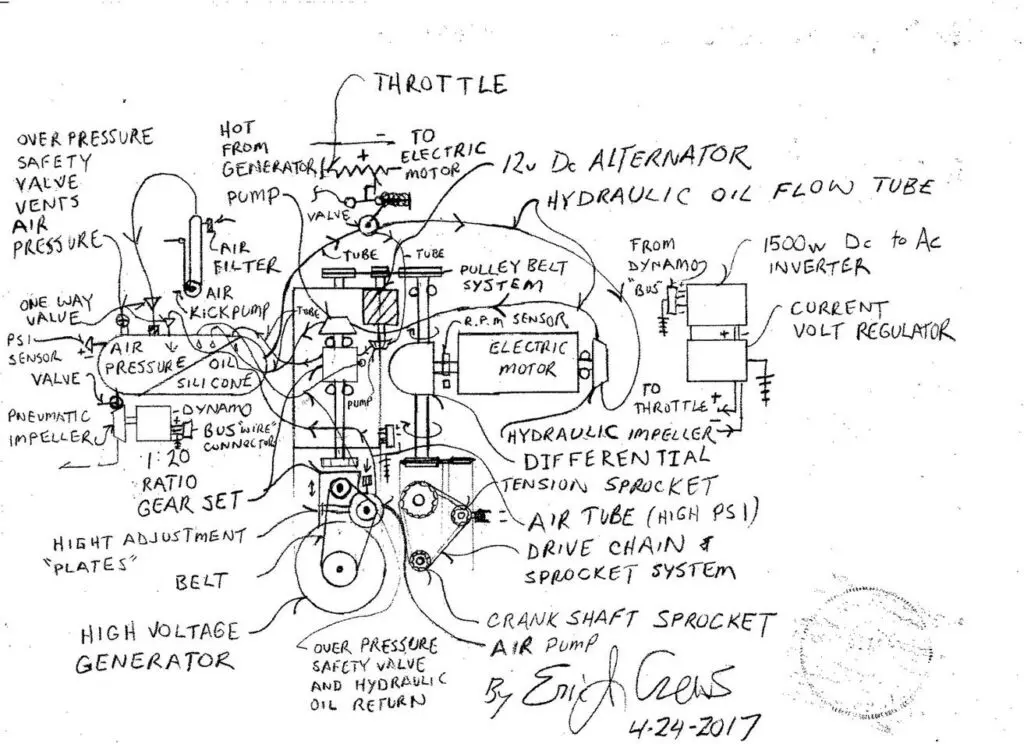 THROTTLE
OVER PRESSURE
SAFETY
VALVE
VENTS
AIR
PRESSURE
HOT
FROM
GENERATOR
- TO
ELECTRIC
MOTOR
+
12v DC ALTERNATOR
PUMP
VALVE
HYDRAULIC OIL FLOW TUBE
AIR
FILTER
TUBE
TUBE
PULLEY BELT
SYSTEM
FROM
DYNAMO
"BUS"
1500w Dc to Ac
INVERTER
ONE WAY
VALVE
AIR
KICKPUMP
TUBE
R.P.M SENSOR
CURRENT
VOLT REGULATOR
PSI
SENSOR
AIR
PRESSURE
OIL
SILICONE
ELECTRIC
MOTOR
VALVE
PUMP
TO
THROTTLE
+
-
PNEUMATIC
IMPELLER
DYNAMO
BUS "WIRE"
CONNECTOR
HYDRAULIC IMPELLER
DIFFERENTIAL
1:20
RATIO
GEAR SET
TENSION SPROCKET
AIR TUBE (HIGH PSI)
HIGHT ADJUSTMENT
"PLATES"
DRIVE CHAIN &
SPROCKET SYSTEM
BELT
CRANK SHAFT SPROCKET
HIGH VOLTAGE
GENERATOR
AIR PUMP
OVER PRESSURE
SAFETY VALVE
AND HYDRAULIC
OIL RETURN
By Eric J Crews
4-24-2017